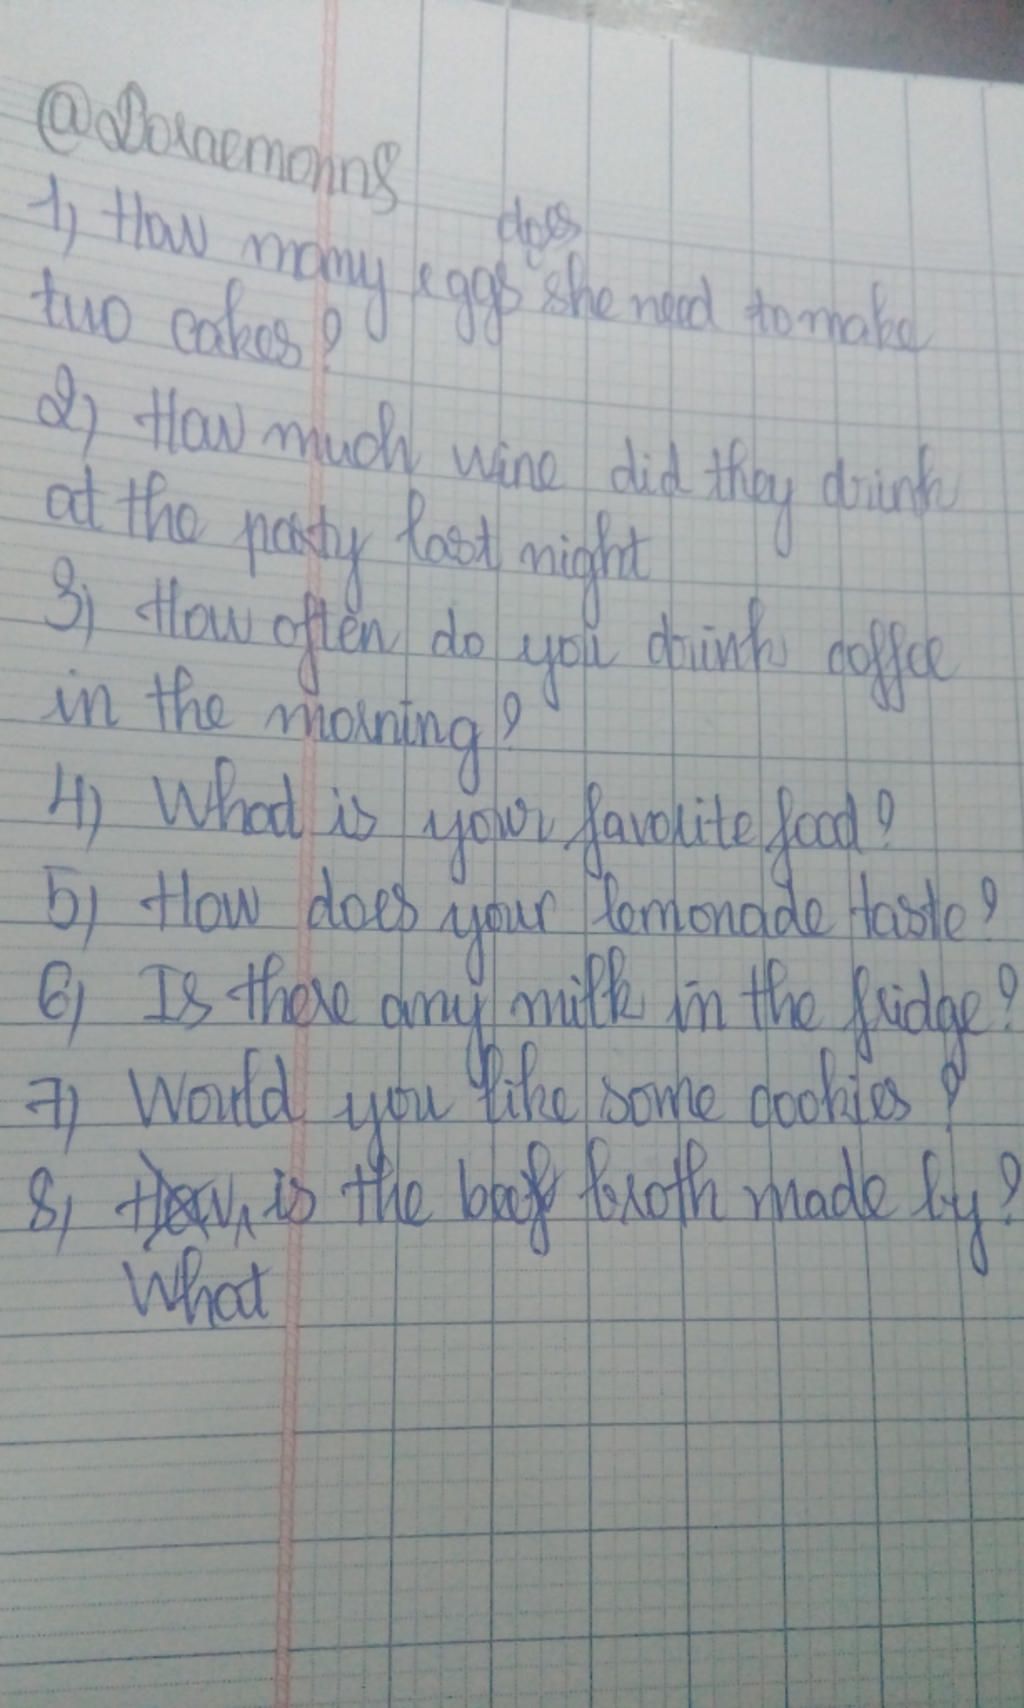 @Doraemonn8
1) How many eggs does she need to make
two cakes?
2) How much wine did they drink
at the party last night
3) How often do you drink coffee
in the morning?
4) What is your favourite food?
5) How does your lemonade taste?
6) Is there any milk in the fridge?
7) Would you like some cookies?
8) How is the beef broth made by?
What